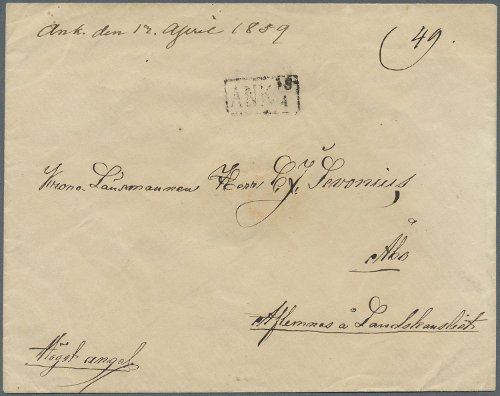 Ank. den 12. April 1859
49
ANK 18/4
Krono-Länsmannen Herr C. J. Sevonius,
à
Åbo
Aflemnas å Landskansliet
Högst angel.